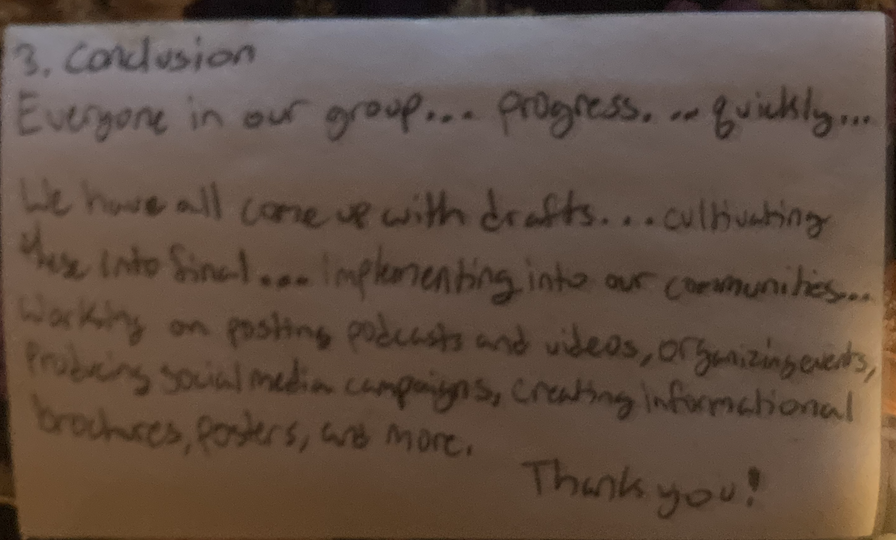 3. Conclusion
Everyone in our group... progress... quickly...
We have all come up with drafts.... cultivating
these into final.... implementing into our communities...
Working on posting podcasts and videos, organizing events,
Producing social media campaigns, creating informational
brochures, posters, and more.
Thank you!